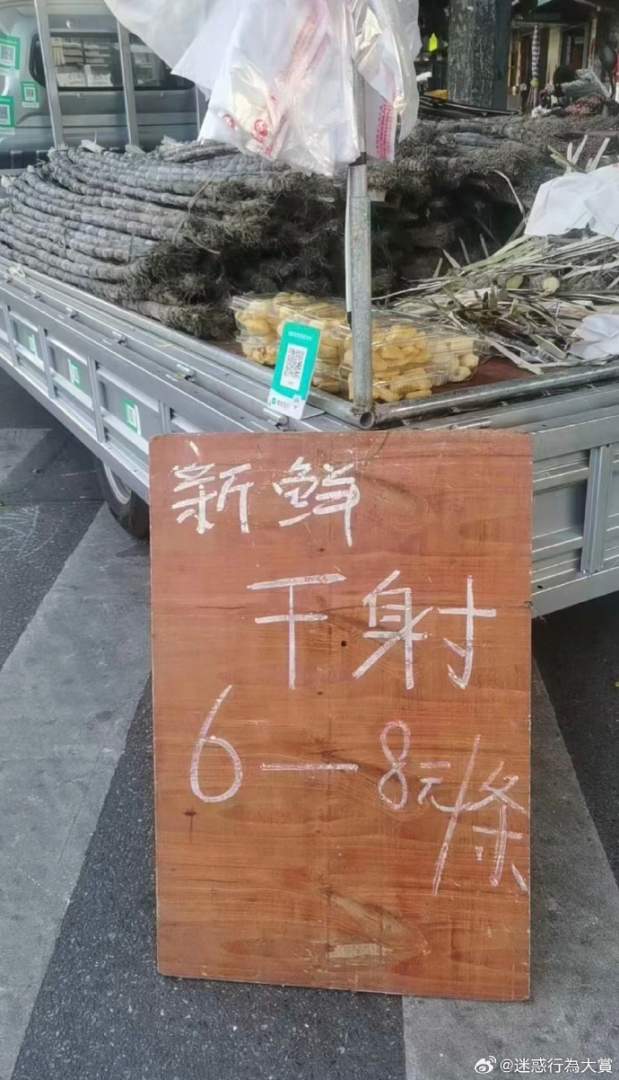 新鲜
干射
6—8元/条
@迷惑行為大賞